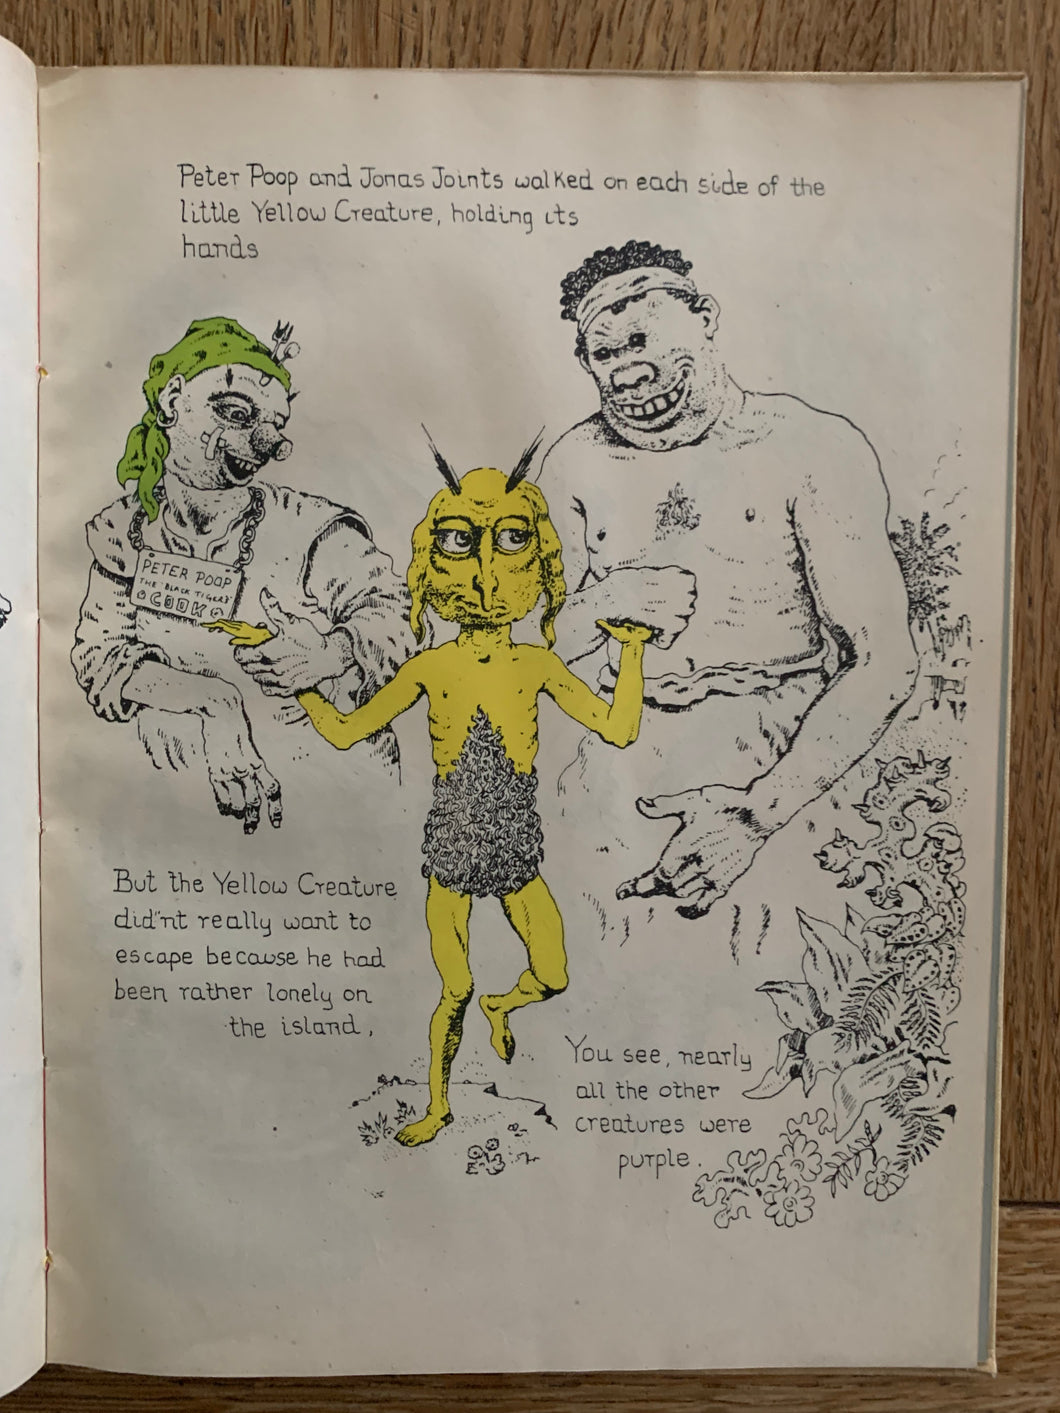 Peter Poop and Jonas Joints walked on each side of the
little Yellow Creature, holding its
hands
PETER POOP
THE BLACK TIGERS'
COOK
But the Yellow Creature
did'nt really want to
escape because he had
been rather lonely on
the island,
You see, nearly
all the other
creatures were
purple.